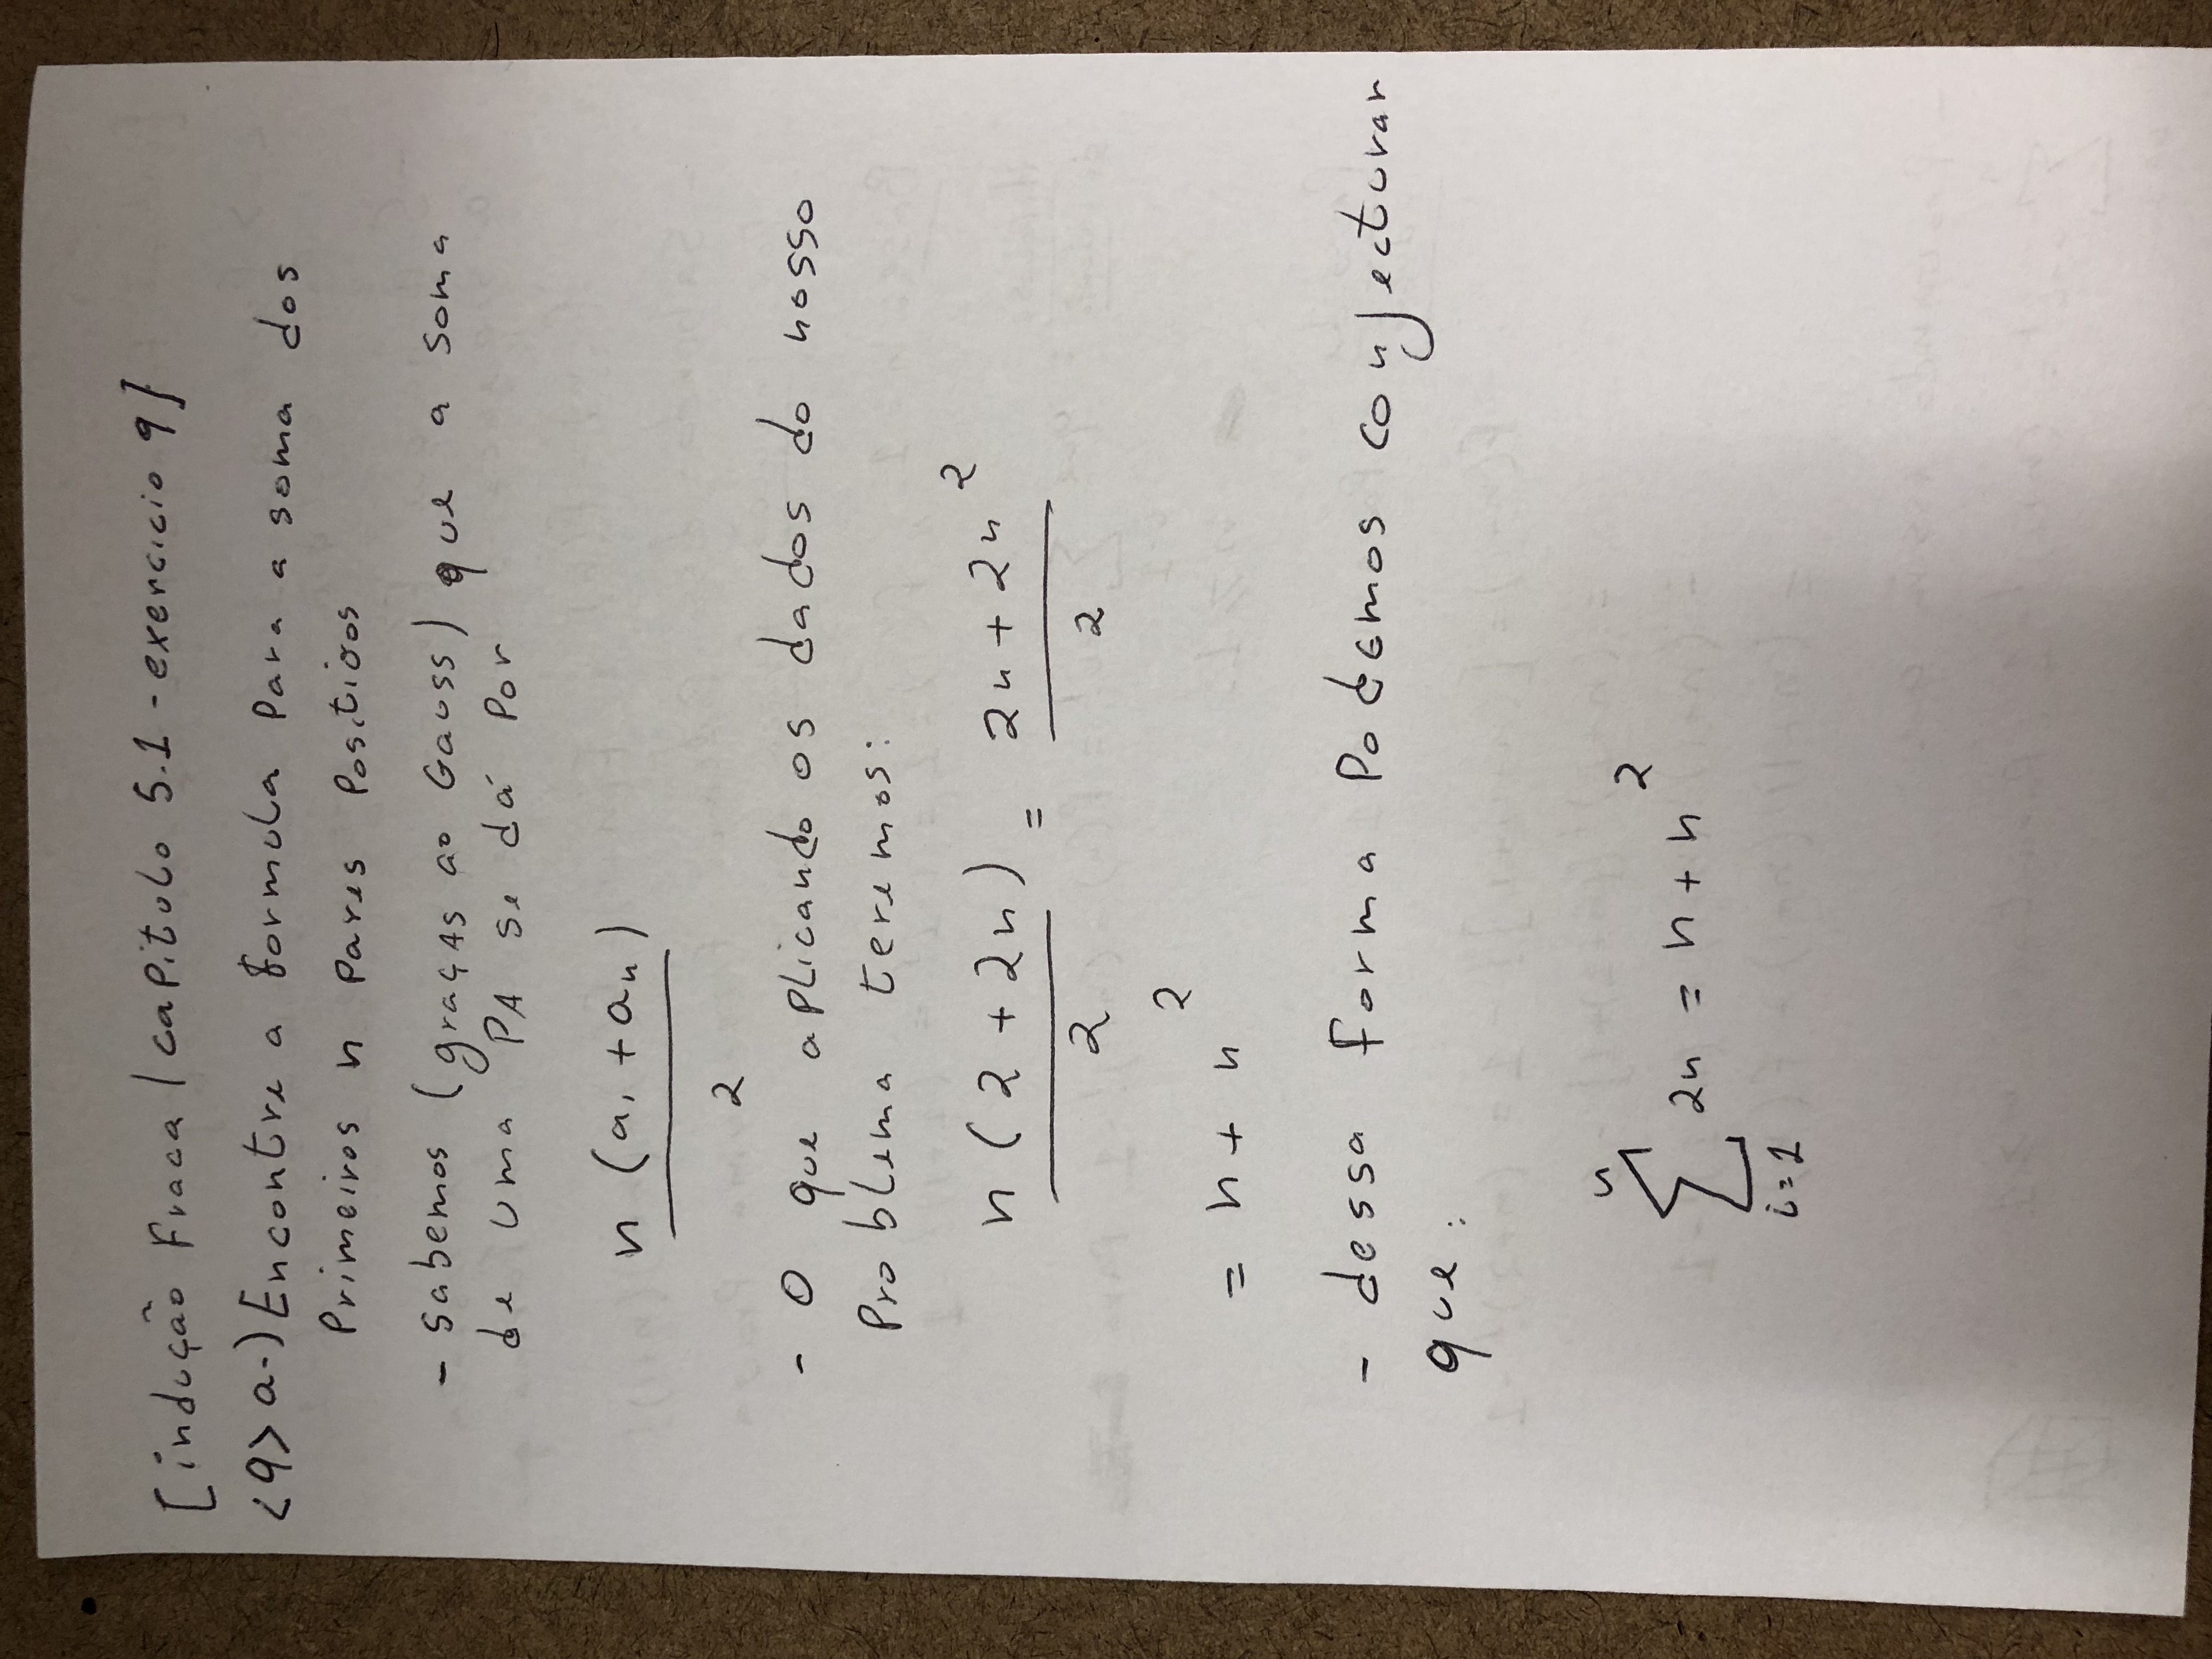 [indução Fraca / capitulo 5.1 - exercicio 9]
<9> a-) Encontre a formula para a soma dos
Primeiros n Pares Positivos
- sabemos (graças ao Gauss) que a soma
de uma PA se dá Por
n (a₁ + aₙ)
2
- O que aplicando os dados do nosso
Problema teremos:
n (2 + 2n) = 2n + 2n²
2 2
= n + n²
- dessa forma Podemos conjecturar
que:
n
∑ 2n = n + n²
i=1